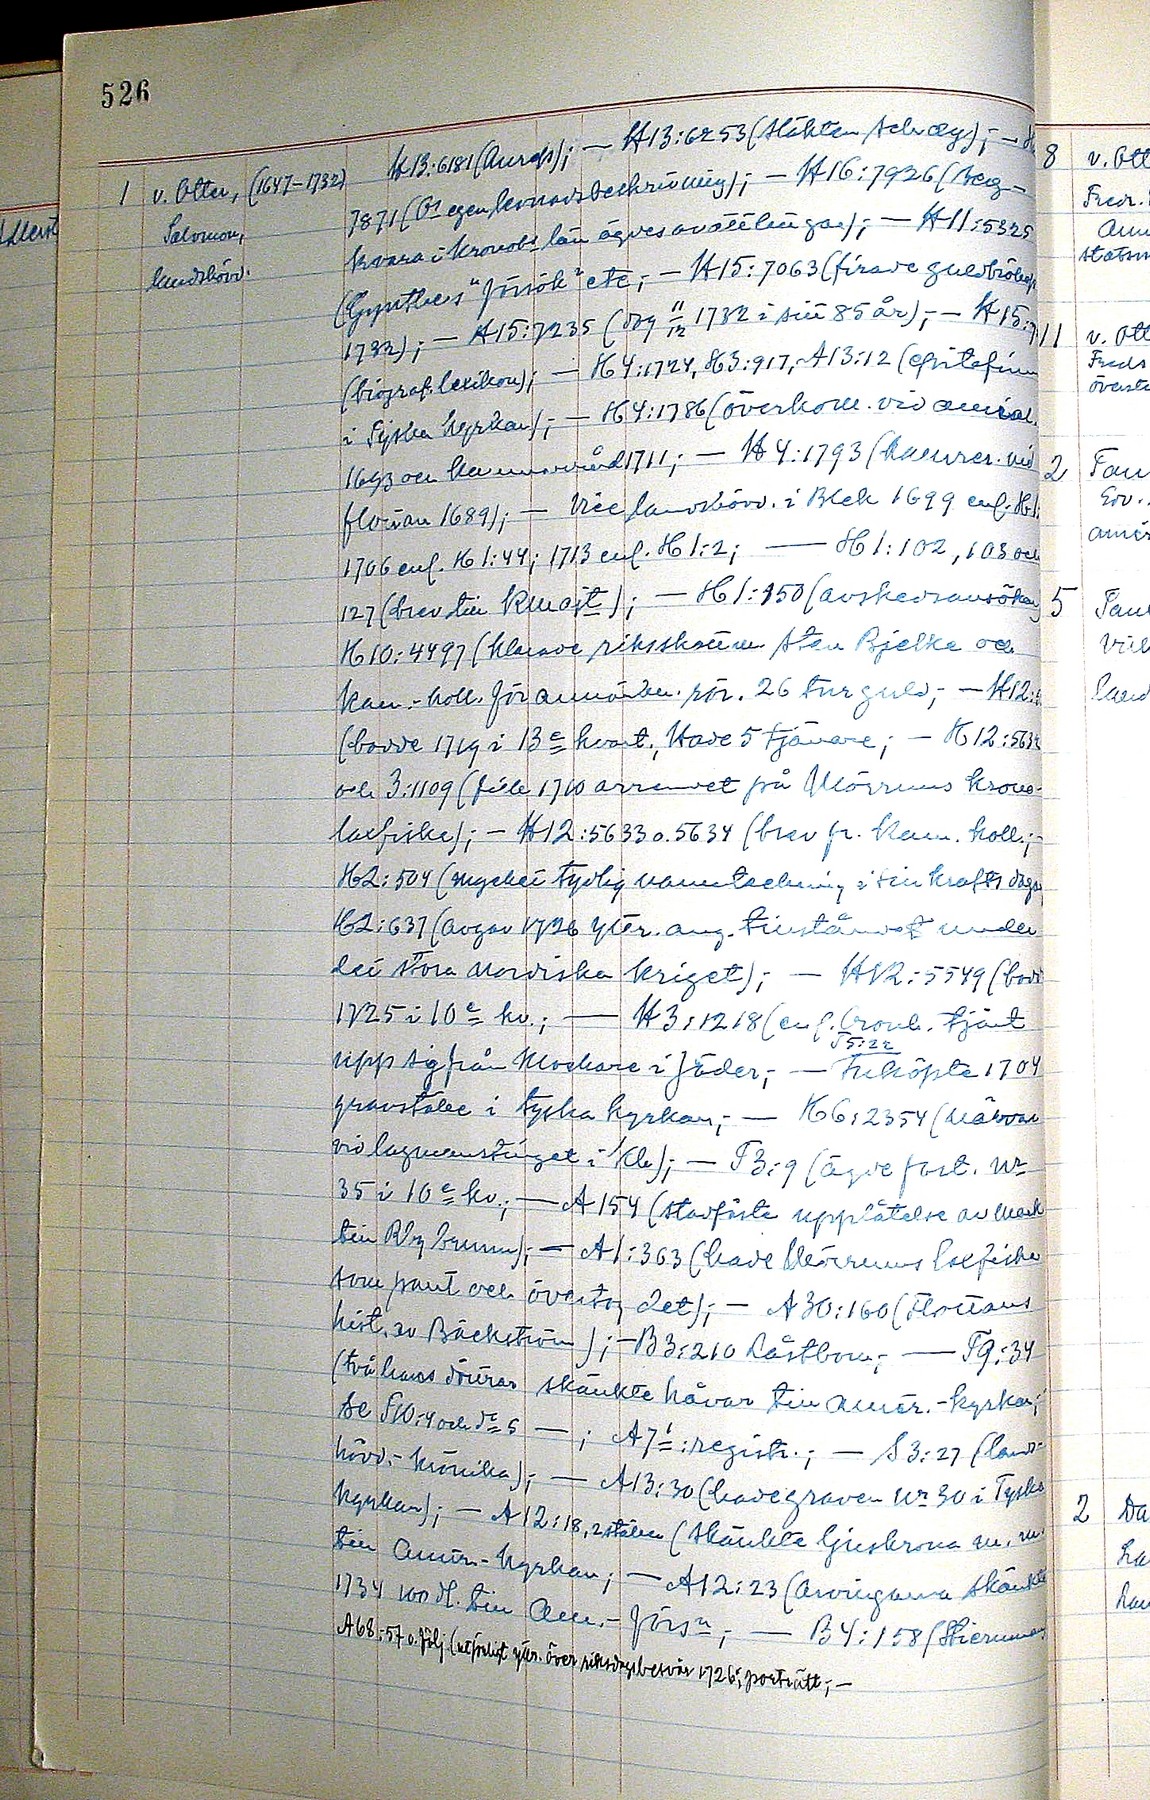 526
H13:6181 ; — H13:6253 (släkten ; —
1 v. Otter, (1647–1732)
Salomon,
landshövd.
7871 (Os egen levnadsbeskrivning); — H16:7926 (Berg-
kvara i Kronobs län ägdes av ; — H11:5325
"försök" etc; — H15:7063 (firade guldbröllop
1732); — A15:7235 (dog 11/12 1732 i sin 85 år); — H15:
(biograf. lexikon); — H4:1724, H3:917, A13:12 (epitafium
i Tyska kyrkan); — H4:1786 (överkom. vid amiral.
1693 och 1711; — H4:1793 (kamrer. vid
flottan 1689); — Vice landshövd. i Blek 1699 enl. H1:
1706 enl. H1:44; 1713 enl. H1:2; — H1:102, 103 och
127 (brev till Kmajt); — H1:150 (avskedsansökan
H10:4497 (klarade Sten Bjelke och
kam.-koll. för rör. 26 tnr guld; — H12:
(bodde 1719 i 13e kvart., Hade 5 tjänare; — H12:563
och 3:1109 (fick 1710 arrendet på Mörrums krono-
laxfiske); — H12:5633 o. 5634 (brev fr. kam. koll.; -
H2:504 (mycket tydlig namnteckning i sin krafts dagar
H2:637 (avgav 1726 yttr. ang. tillståndet under
det stora nordiska kriget); — H12:5549 (bodde
1725 i 10e kv.; — H3:1218 (enl. Cronh. tjänt
T5:22
upp sig från Mockare i Jäder; — Inköpte 1704
gravställe i tyska kyrkan; — H6:2354 (närvar
vid lagmanstinget i Kh); — T3:9 (ägde fast. Nr
35 i 10e kv.; — A154 (stadfäste upplåtelse av mark
till Rby brunn); — A1:363 (hade Mörrums laxfiske
som pant och övertog det); — A30:160 (Flottans
hist. av Bäckström); — B3:210 Låstbom; — T9:34
(två hans döttrar skänkte håvar till amir.-kyrkan;
se S10:4 och do 5 —; A7 1:registr.; — S3:27 (lands-
hövd.-krönika); — A13:30 (hade graven Nr 30 i Tyska
kyrkan); — A12:18, 2 ställen (skänkte ljuskrona m. m.
till Amir.-kyrkan; — A12:23 (arvingarna skänkte
1734 100 dl. till Am.-förs:n; — B4:158 (Stiernman
A68:57 o. följ (utförligt yttr. över riksdagsbesvär 1726; porträtt; —
8 v. Ott
Fredr.
statsm
11 v. Ott
Freds
överste
2 Fau
Edv.
amir
5
Vill
land
2 Da